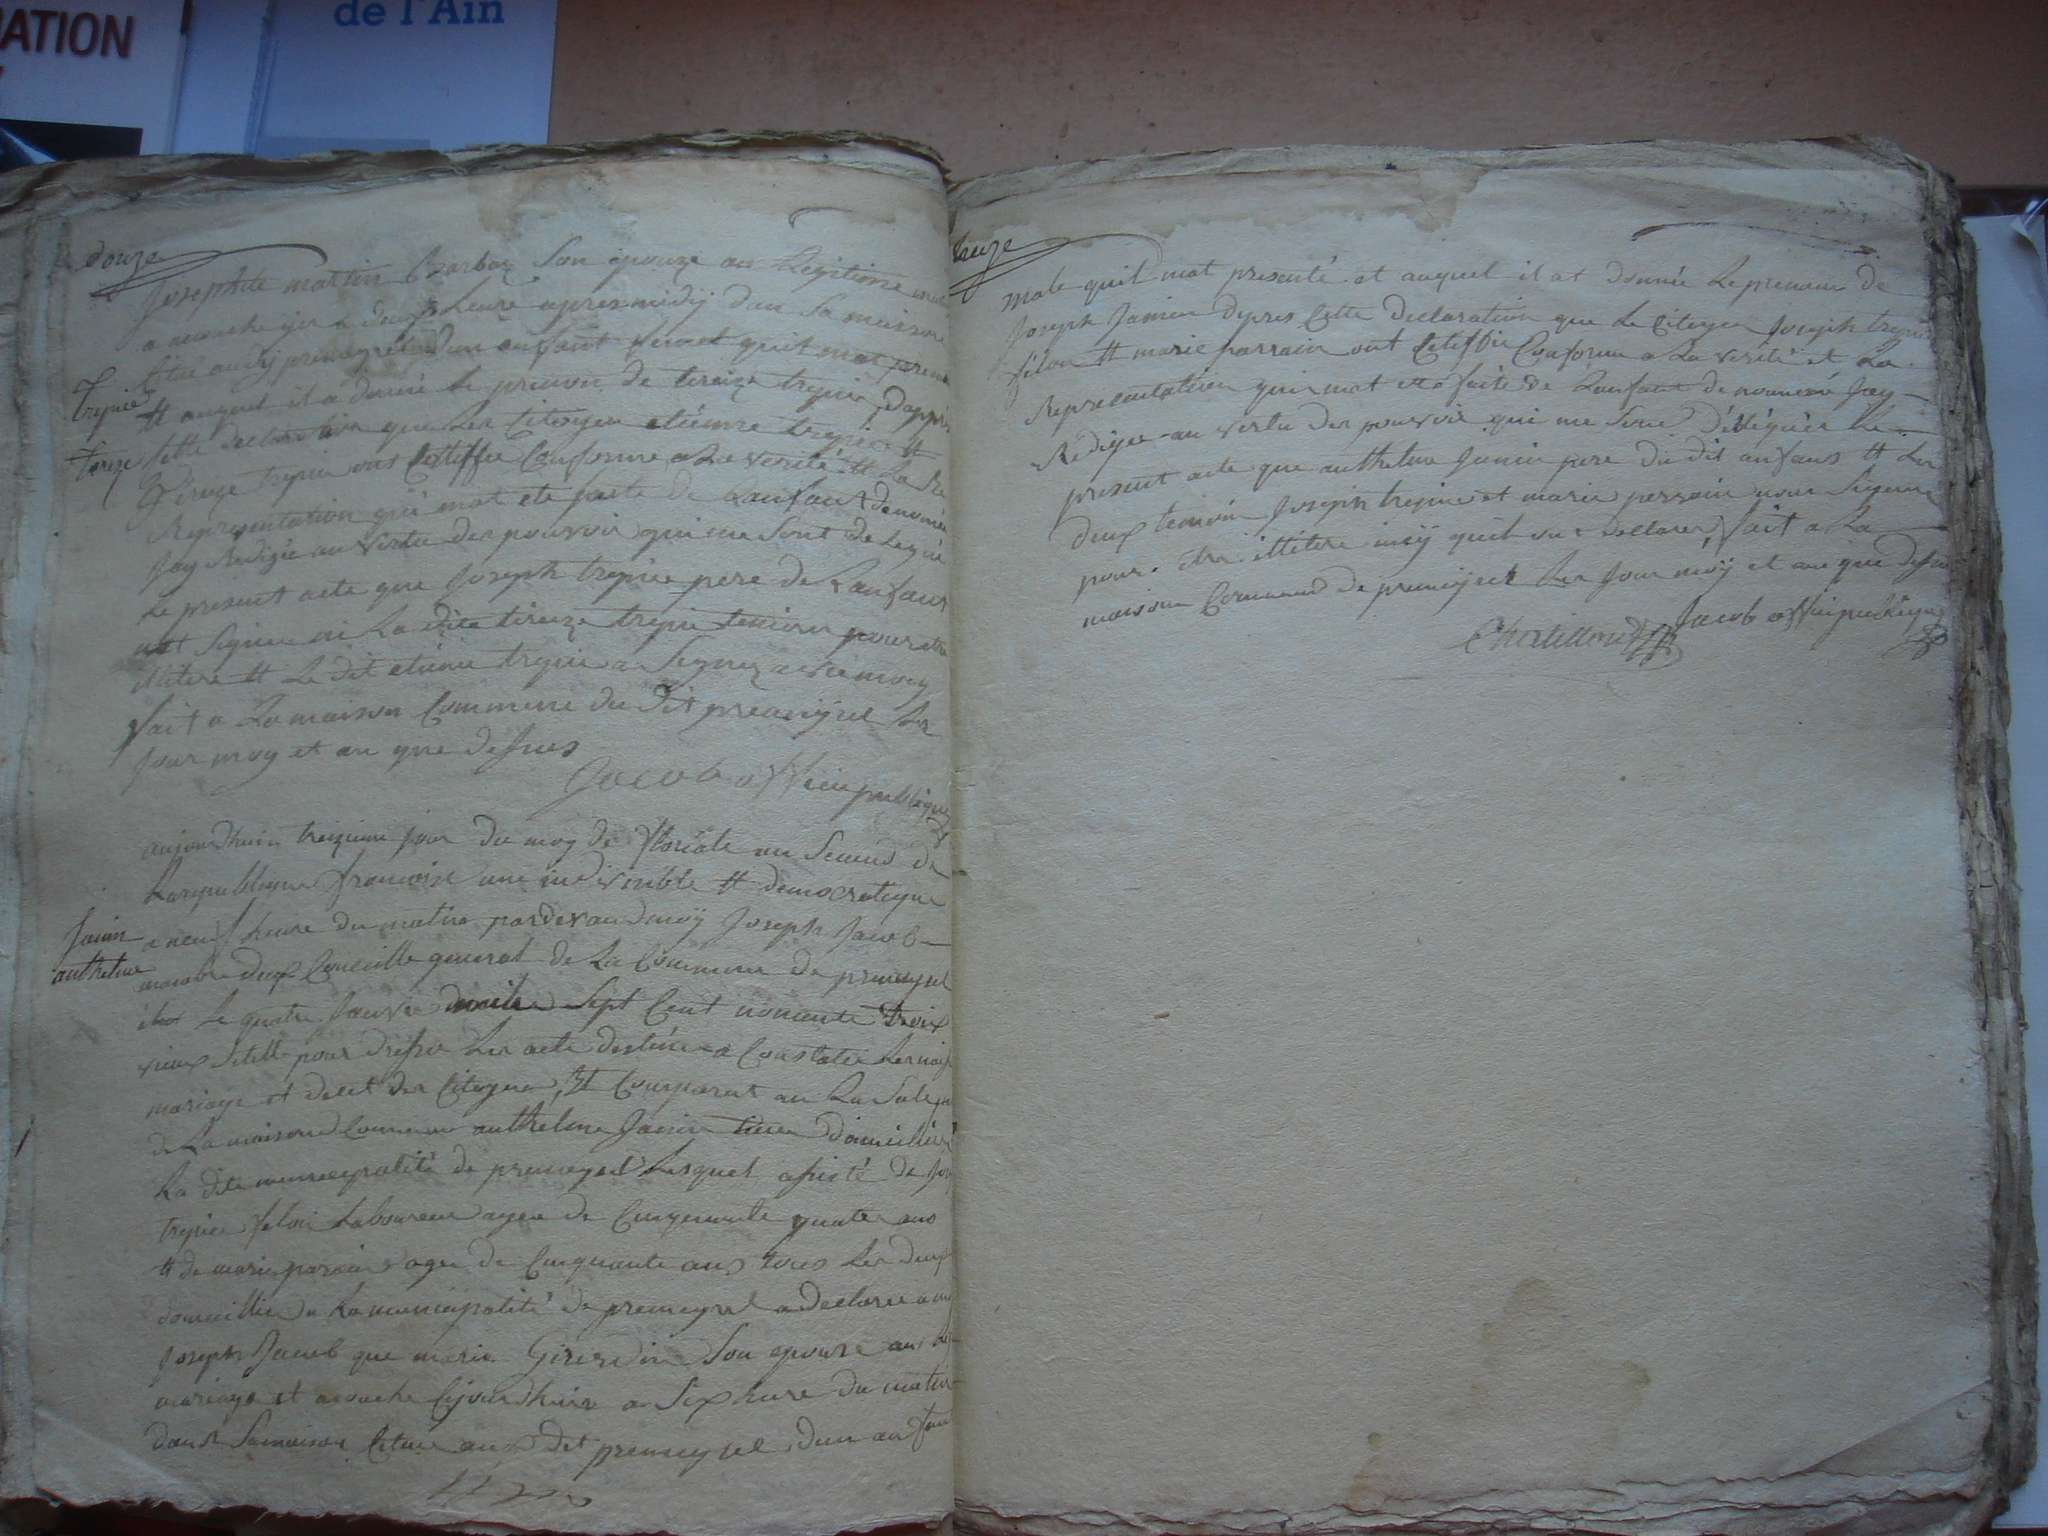 ATION
de l'Ain
douze
Josephte martin Barbar Son epouze au Legitime
a acouche yer a deux heure apres midy dan Sa maison
Citue audy premeyzel dun anfant femel quil mat
tt auquel il a donné le prenon de tereize trepier dapprè
Trepié
tereze
Cette declaration que Les Citoyen etienne trepier tt
Téreze trepier ons Certiffie Conforme a La verité tt La
Representation qui mat ete faite de Lanfant denomé
Jay Redigée au vertu des pouvoir qui me Sont delegué
Le present acte que Joseph trepier pere de Lanfant
Signer ni La dite tireuze trepier temoin pour etre
illitere tt Le dit etienne trepier a Signez avec moy
fait a La maison Commune du dit premeyzel Les
Jour moy et an que desues
Jacob officier publique
aujourdhuir treizieme jour du moy de floréale an Second de
La republique francoise une indivisible tt democratique
Janin
anthelme
a neuf heure du matin pardevand moÿ Joseph Jacob
membre du Conceille general de La Commune de premeyzel
élus Le quatre Janvier mile Sept Cent nonente trois
vieux Stille pour dresser Les acte destinée a Constater Les
mariage et decet des Citoyen, tt Comparut au La Sale
de La maison Commune anthelme Janin domicillié
La dite municipalité de premeyzel Lesquel assisté de
trepier felon Laboureur agee de Cinquante quatre ans
tt de marie parain agee de Cinquante ans tous Les deux
domicillie de La municipalité de premeyzel a declaree a
Joseph Jacob que marie Girerdin Son epouse au
mariage et acouche Cejourdhuir a Six heure du matin
dans Sa maison Citue au dit premeyzel dun anfan
treize
male quil mat presenté et auquel il at donnée Le prenom de
Joseph Janin dypres Cette Declaration que Le Citoyen Joseph trepier
félon tt marie parrain ont Certiffie Conforme a La verité et La
Representation qui mat ete faite de Lanfant denommé Jay
Rédigee au vertu des pouvoir qui me Sont Délégués Le
present acte que anthelme Janin pere du dit anfans tt Les
deux temoin Joseph trepier et marie perrain nont Signer
pour etre illitere insÿ quil ont declarer, fait a La
maison Commune de premeyzel Les Jour moÿ et an que desus
Jacob officier publique
Chatillond